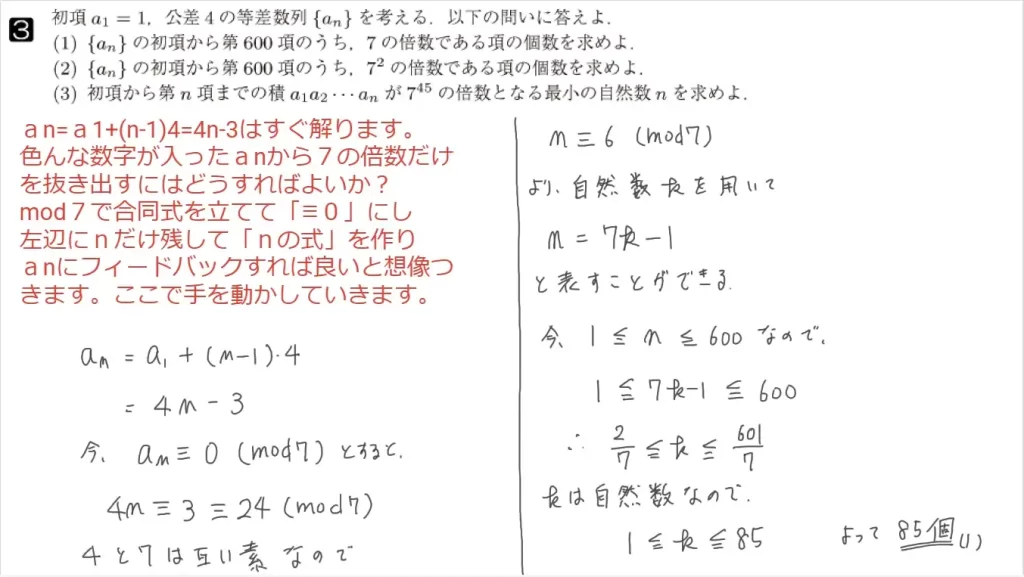 3
初項 a₁ = 1, 公差 4 の等差数列 {aₙ} を考える. 以下の問いに答えよ.
(1) {aₙ} の初項から第 600 項のうち, 7 の倍数である項の個数を求めよ.
(2) {aₙ} の初項から第 600 項のうち, 7² の倍数である項の個数を求めよ.
(3) 初項から第 n 項までの積 a₁a₂⋯aₙ が 7⁴⁵ の倍数となる最小の自然数 n を求めよ.
ａn=ａ1+(n-1)4=4n-3はすぐ解ります。
色んな数字が入ったａnから７の倍数だけ
を抜き出すにはどうすればよいか？
mod７で合同式を立てて「≡０」にし
左辺にｎだけ残して「ｎの式」を作り
ａnにフィードバックすれば良いと想像つ
きます。ここで手を動かしていきます。
aₙ = a₁ + (n-1)・4
= 4n - 3
今、aₙ ≡ 0 (mod7) とすると、
4n ≡ 3 ≡ 24 (mod7)
4と7は互い素なので
n ≡ 6 (mod7)
より、自然数kを用いて
n = 7k-1
と表すことができる.
今、1 ≦ n ≦ 600 なので、
1 ≦ 7k-1 ≦ 600
∴ 2/7 ≦ k ≦ 601/7
kは自然数なので、
1 ≦ k ≦ 85 よって 85個 (1)